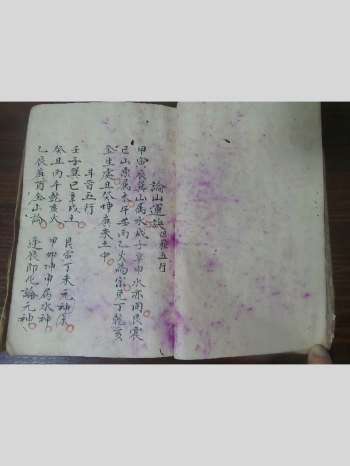 論山運訣 洪範五行
甲寅辰巽山屬水戌子辛申水亦同艮震
巳山原屬木午壬丙乙火為宗兌丁乾亥
金生處丑癸坤庚未土中
斗首五行
壬子巽巳辛戌土 艮寅丁未元神
癸丑丙午乾亥火 甲卯坤申屬水神
乙辰庚酉金山論 逢辰即化論元神